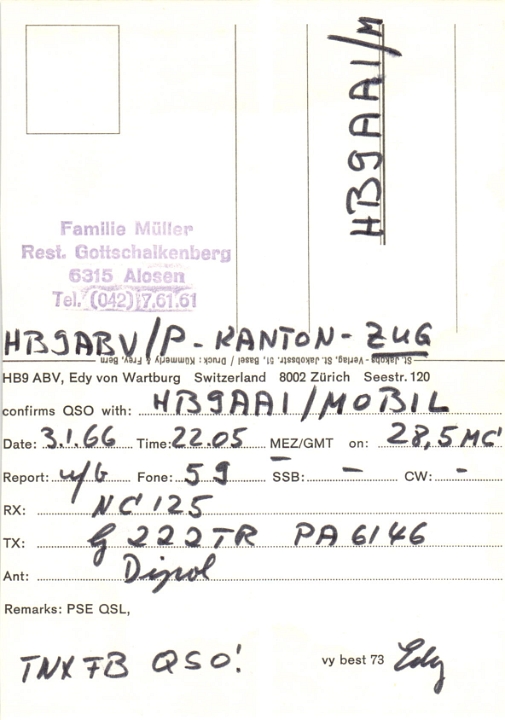 HB9AA1/M
Familie Müller
Rest. Gottschalkenberg
6315 Alosen
Tel. (042) 7.61.61
HB9ABV/P - KANTON - ZUG
St. Jakobs-Verlag, St. Jakobsstr. 10, Basel / Druck: Kümmerly & Frey, Bern
HB9 ABV, Edy von Wartburg Switzerland 8002 Zürich Seestr. 120
confirms QSO with: HB9AA1/MOBIL
Date: 3.1.66 Time: 22.05 MEZ/GMT on: 28,5 MC
Report: w/G Fone: 59 SSB: - CW: -
RX: NC 125
TX: G 222TR PA 6146
Ant: Dipol
Remarks: PSE QSL,
TNX FB QSO!
vy best 73 Edy